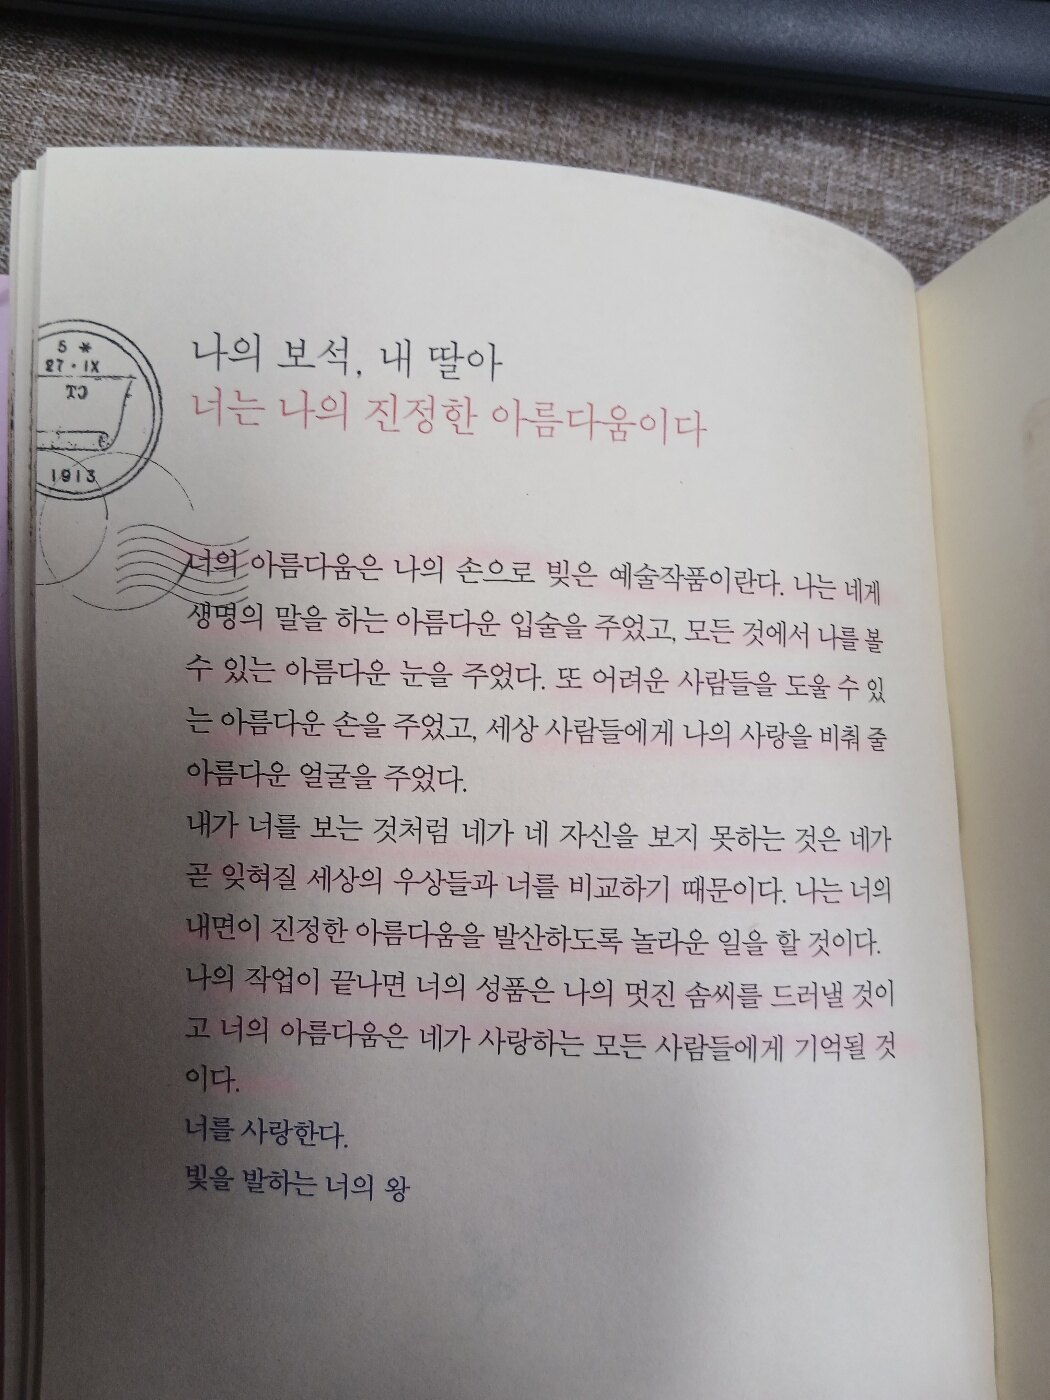 5 *
27 · IX
1913
나의 보석, 내 딸아
너는 나의 진정한 아름다움이다
너의 아름다움은 나의 손으로 빚은 예술작품이란다. 나는 네게
생명의 말을 하는 아름다운 입술을 주었고, 모든 것에서 나를 볼
수 있는 아름다운 눈을 주었다. 또 어려운 사람들을 도울 수 있
는 아름다운 손을 주었고, 세상 사람들에게 나의 사랑을 비춰 줄
아름다운 얼굴을 주었다.
내가 너를 보는 것처럼 네가 네 자신을 보지 못하는 것은 네가
곧 잊혀질 세상의 우상들과 너를 비교하기 때문이다. 나는 너의
내면이 진정한 아름다움을 발산하도록 놀라운 일을 할 것이다.
나의 작업이 끝나면 너의 성품은 나의 멋진 솜씨를 드러낼 것이
고 너의 아름다움은 네가 사랑하는 모든 사람들에게 기억될 것
이다.
너를 사랑한다.
빛을 발하는 너의 왕